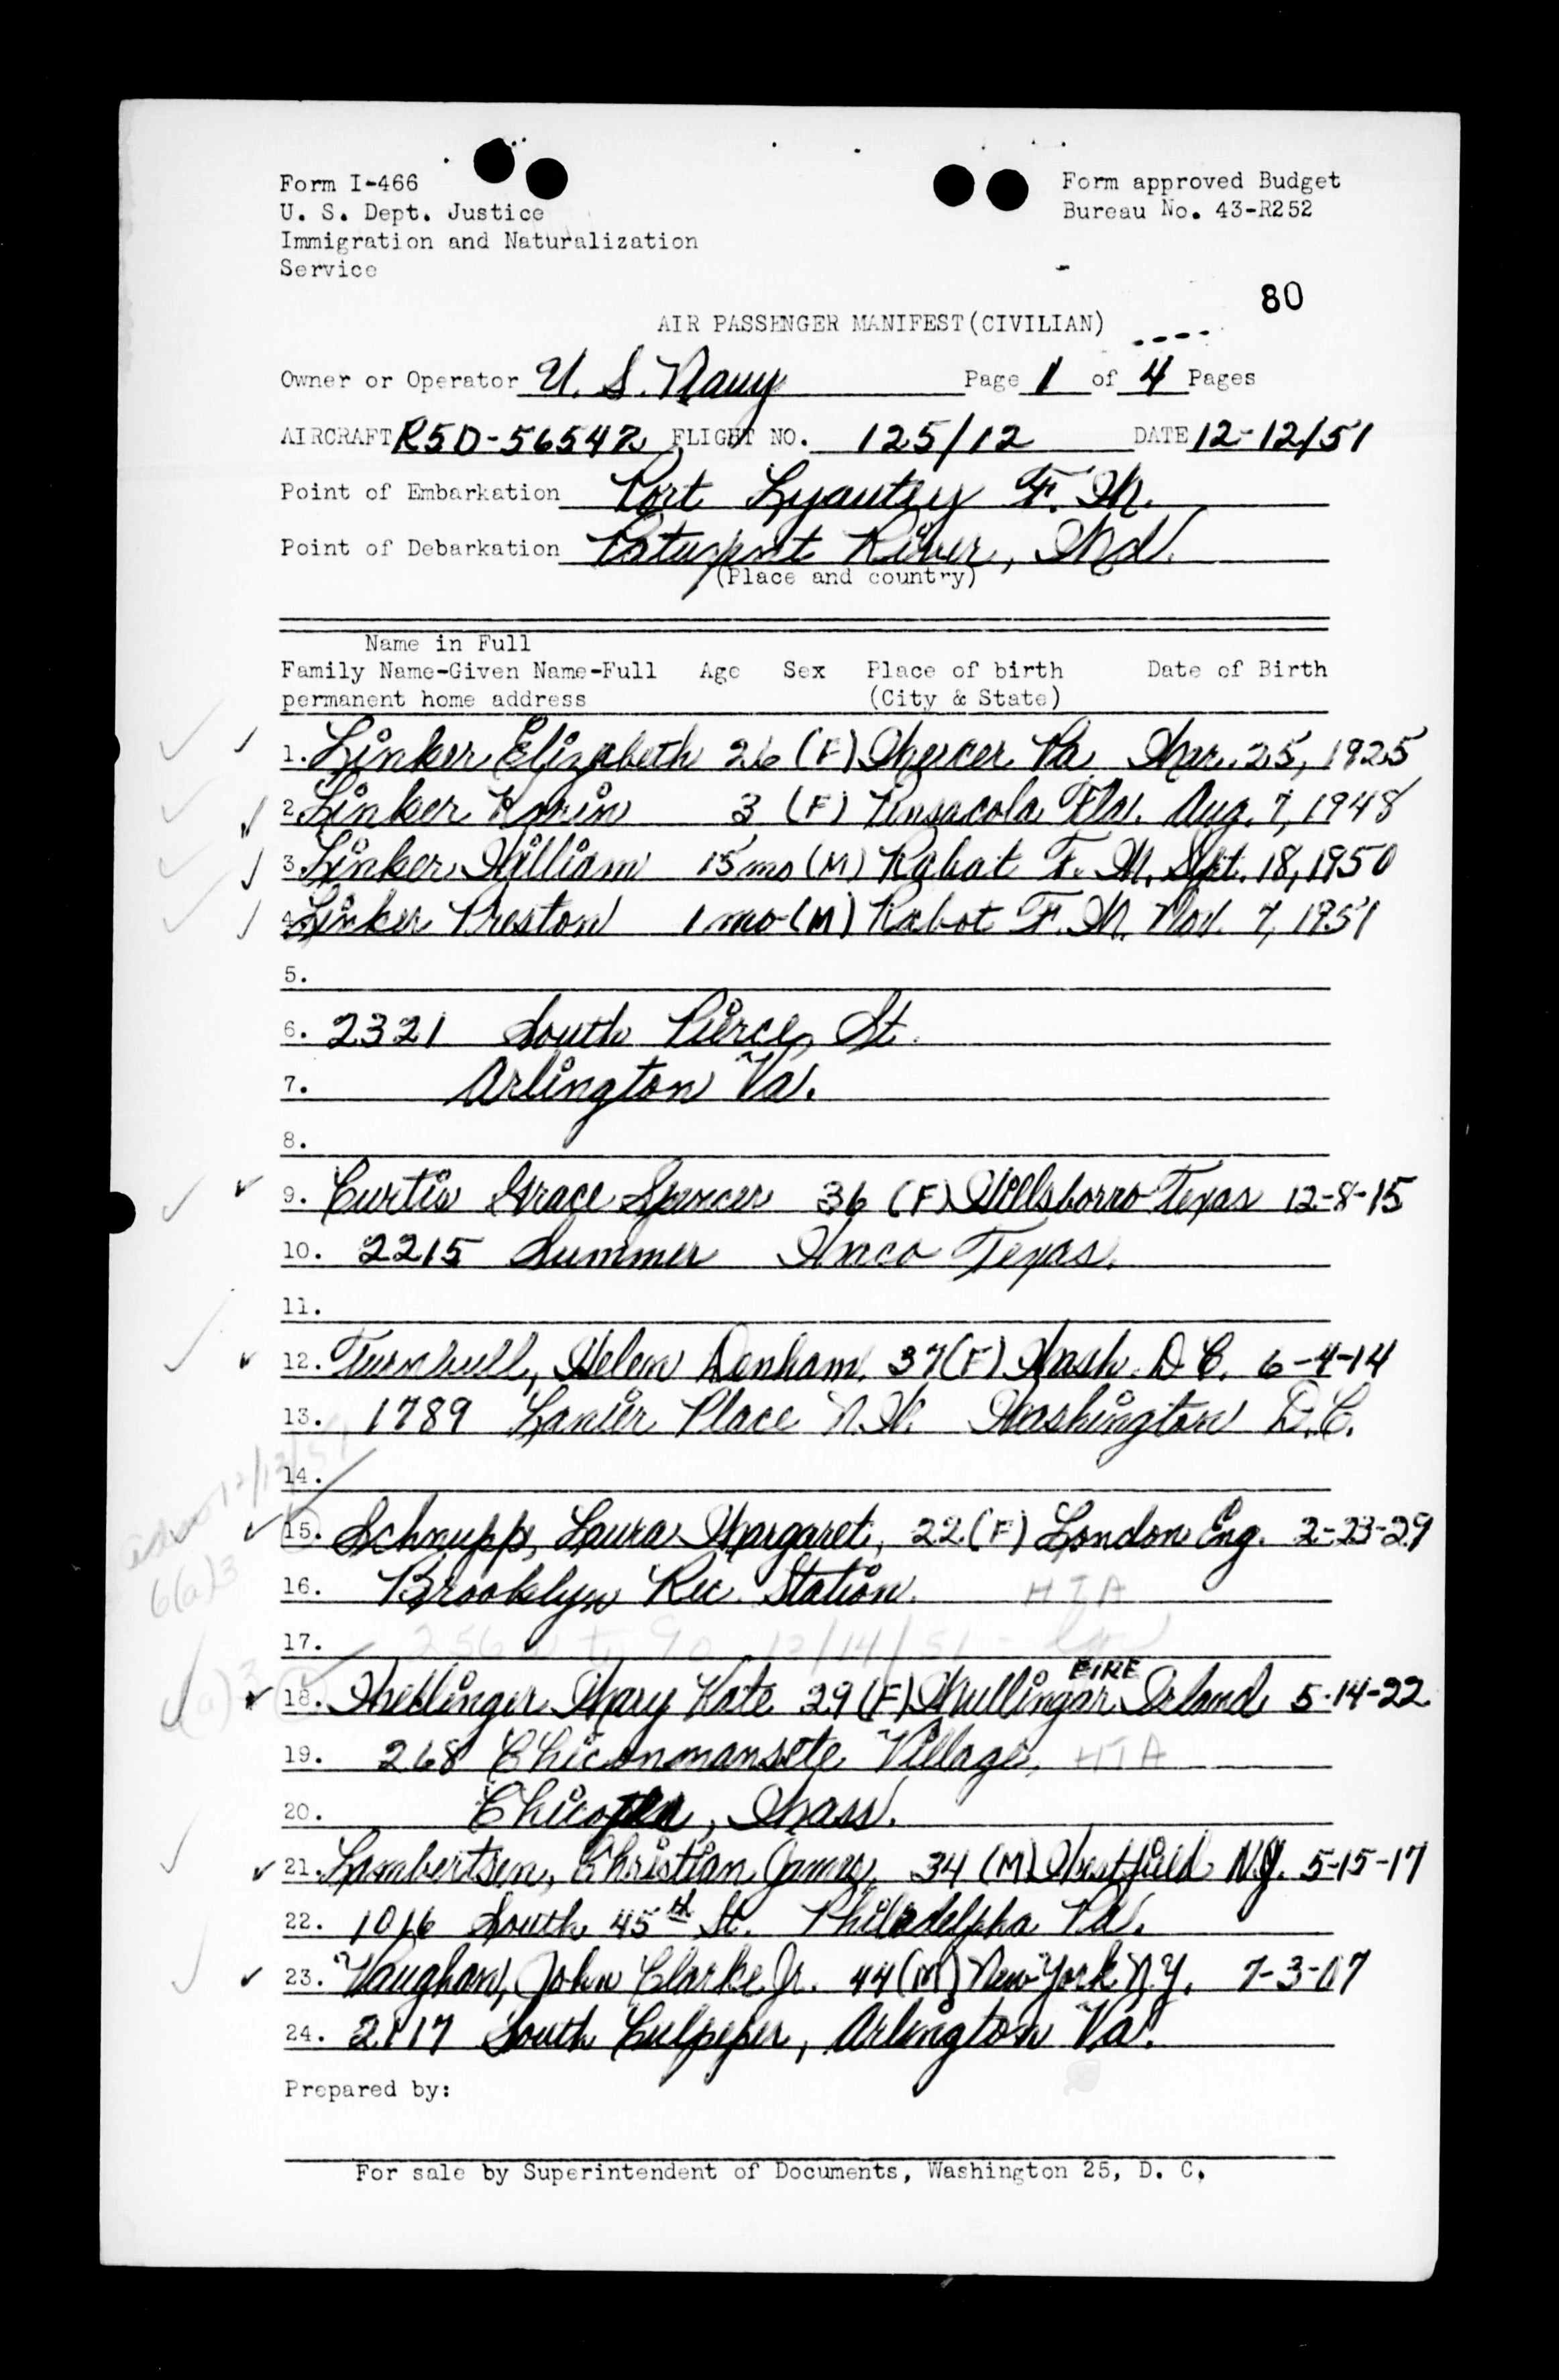 Form I-466
U. S. Dept. Justice
Immigration and Naturalization
Service
Form approved Budget
Bureau No. 43-R252
80
AIR PASSENGER MANIFEST (CIVILIAN)
Owner or Operator U. S. Navy Page 1 of 4 Pages
AIRCRAFT R5D-56547 FLIGHT NO. 125/12 DATE 12-12/51
Point of Embarkation Port Lyautey F. M.
Point of Debarkation Patuxent River, Md.
(Place and country)
Name in Full
Family Name-Given Name-Full Age Sex Place of birth Date of Birth
permanent home address (City & State)
1. Linker Elizabeth 26 (F) Mercer Pa Mar. 25, 1925
2 Linker Karin 3 (F) Pensacola Fla. Aug. 7, 1948
3. Linker William 15 mo (M) Rabat F. M. Sept. 18, 1950
4. Linker Preston 1 mo (M) Rabat F. M. Nov. 7, 1951
5.
6. 2321 South Pierce St.
7. Arlington Va.
8.
9. Curtis Grace Spencer 36 (F) Hillsborro Texas 12-8-15
10. 2215 Summer Waco Texas.
11.
12. Turnbull, Helen Denham. 37 (F) Wash. D C. 6-4-14
13. 1789 Lanier Place N.W. Washington D.C.
14.
12/12/51
6(a)3
15. Schnupp, Laura Margaret, 22 (F) London Eng. 2-23-29
16. Brooklyn Rec. Station. HTA
17. 12/14/51
EIRE
18. Mary Kate 29 (F) Mullingar Irland 5-14-22
19. 268 Village, HTA
20. Chicopee, Mass.
21. Lambertsen, Christian James, 34 (M) Westfield N.J. 5-15-17
22. 1016 South 45th St. Philadelpha Pa.
23. Vaughan, John Clarke Jr. 44 (M) New York N.Y. 7-3-07
24. 2117 South Culpeper, Arlington Va.
Prepared by:
For sale by Superintendent of Documents, Washington 25, D. C.